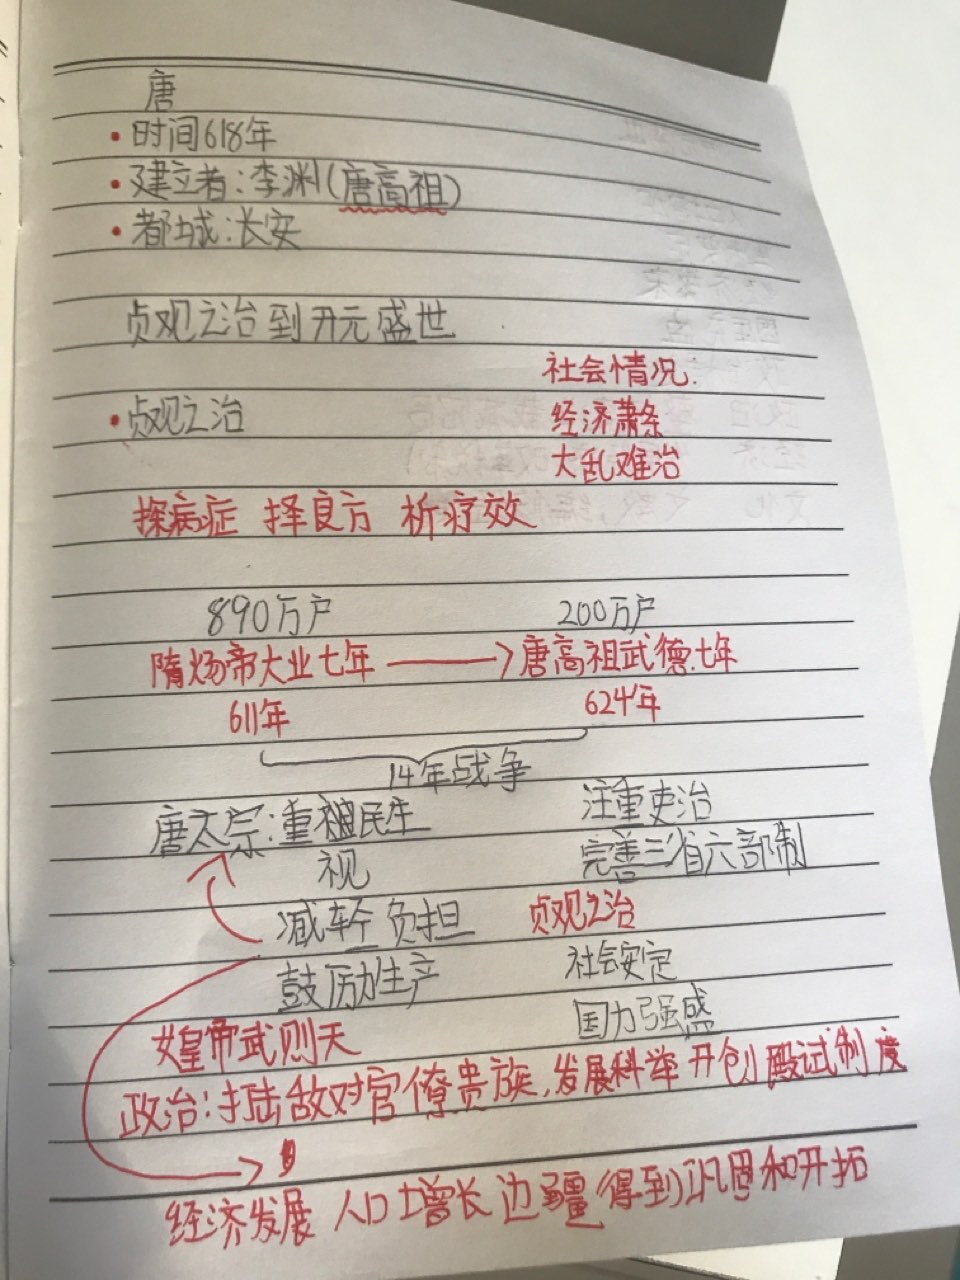 唐
·时间618年
·建立者:李渊(唐高祖)
·都城:长安
贞观之治到开元盛世
社会情况.
·贞观之治 经济萧条
大乱难治
探病症 择良方 析疗效
890万户 200万户
隋炀帝大业七年 → 唐高祖武德七年
611年 624年
14年战争
唐太宗:重视民生 注重吏治
视 完善三省六部制
减轻负担 贞观之治
鼓厉励生产 社会安定
国力强盛
女皇帝武则天
政治:打击敌对官僚贵族,发展科举 开创殿试制度
经济发展 人口增长 边疆得到巩固和开拓